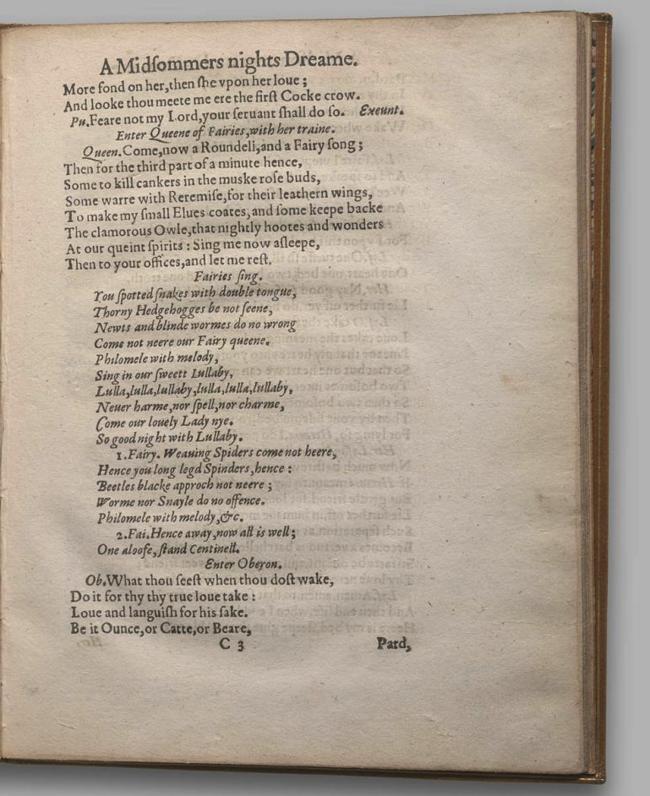 A Midſommers nights Dreame.
More fond on her,then ſhe vpon her loue;
And looke thou meete me ere the firſt Cocke crow.
Pu.Feare not my Lord,your ſeruant ſhall do ſo. Exeunt.
Enter Queene of Fairies,with her traine.
Queen.Come,now a Roundell,and a Fairy ſong;
Then for the third part of a minute hence,
Some to kill cankers in the muske roſe buds,
Some warre with Reremiſe,for their leathern wings,
To make my ſmall Elues coates,and ſome keepe backe
The clamorous Owle,that nightly hootes and wonders
At our queint ſpirits: Sing me now aſleepe,
Then to your offices,and let me reſt.
Fairies ſing.
You ſpotted ſnakes with double tongue,
Thorny Hedgehogges be not ſeene,
Newts and blinde wormes do no wrong
Come not neere our Fairy queene.
Philomele with melody,
Sing in our ſweett Lullaby,
Lulla,lulla,lullaby,lulla,lulla,lullaby,
Neuer harme,nor ſpell,nor charme,
Come our louely Lady nye.
So good night with Lullaby.
1.Fairy. Weauing Spiders come not heere,
Hence you long legd Spinders,hence:
Beetles blacke approch not neere;
Worme nor Snayle do no offence.
Philomele with melody,&c.
2.Fai.Hence away,now all is well;
One aloofe,ſtand Centinell.
Enter Oberon.
Ob.What thou ſeeſt when thou doſt wake,
Do it for thy thy true loue take:
Loue and languiſh for his ſake.
Be it Ounce,or Catte,or Beare,
C 3 Pard,